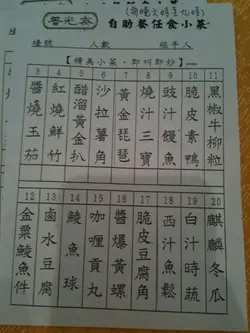 (每晚六時至九時)
自助餐任食小菜
檯號 人數 經手人
【精美小菜・即叫即炒】
3 醬燒玉茄
4 紅燒鮮竹
5 醋溜黃金魚
6 沙拉薯角
7 黃金琵琶
8 燒汁三寶
9 豉汁鰻魚
10 脆皮素鴨
11 黑椒牛柳粒
12 金粟鯪魚件
13 鹵水豆腐
14 鯪魚球
15 咖喱貢丸
16 醬爆黃螺
17 脆皮豆腐角
18 西汁魚鬆
19 白汁時蔬
20 麒麟冬瓜